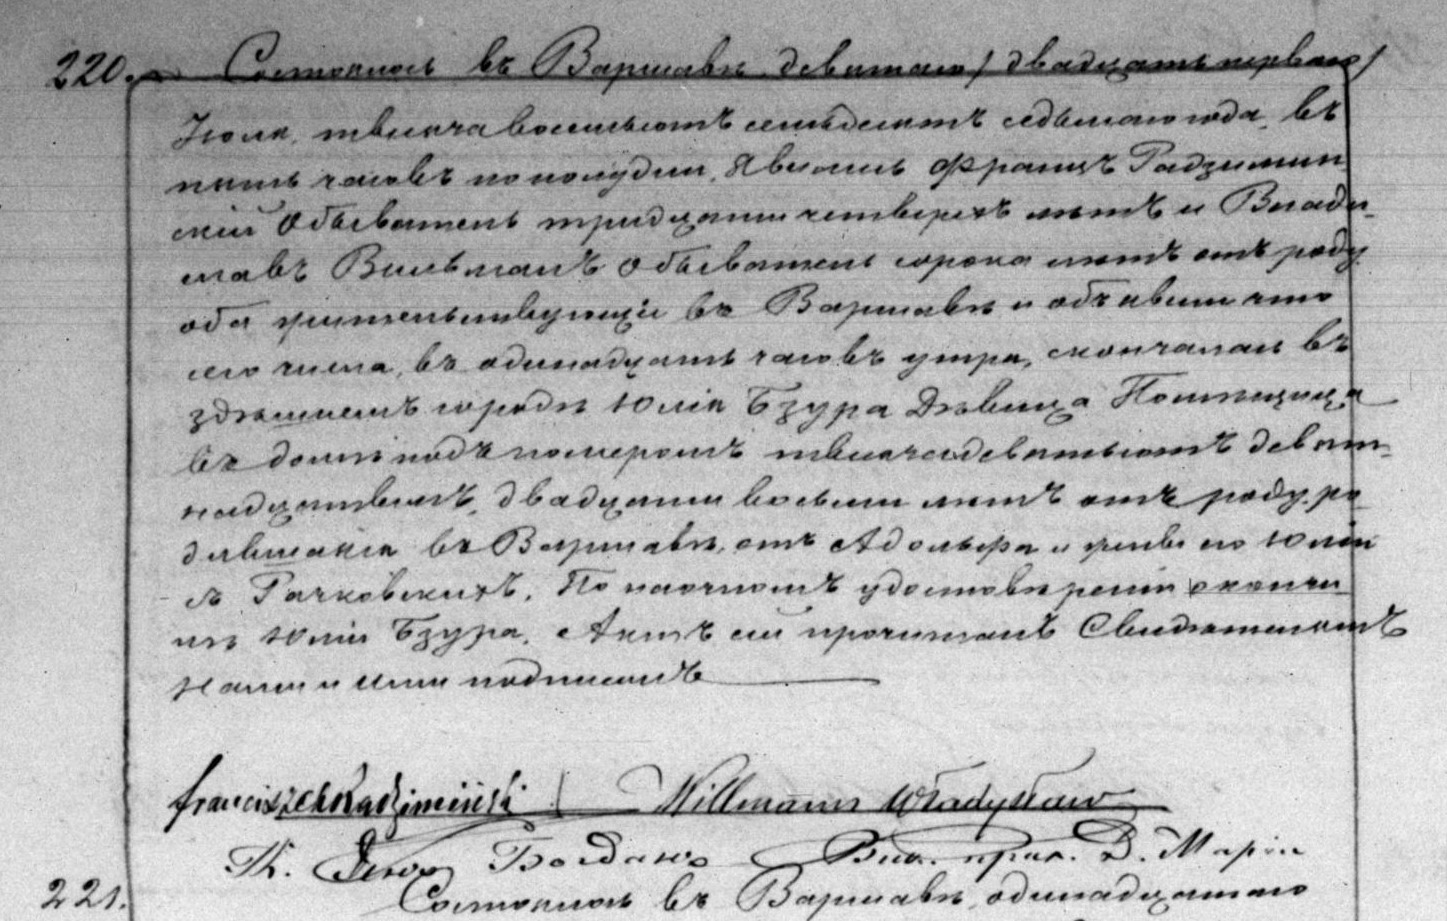 220. Состоялось въ Варшавѣ девятаго / двадцать перваго /
Іюля, тысяча восемьсотъ семьдесятъ седьмаго года, въ
пять часовъ по полудни, Явились Францъ Радзимин
скій Обыватель тридцати четверехъ лѣтъ и Влади-
славъ Вильманъ Обыватель сорока лѣтъ отъ роду
оба жительствующіе въ Варшавѣ и объявили что
сего числа, въ одинадцать часовъ утра, скончалась въ
здѣшнемъ городѣ Юлія Бзура Дѣвица Помѣщица
въ домѣ подъ номеромъ тысяча девятьсотъ девят-
надцатымъ, двадцати восьми лѣтъ отъ роду, ро
дившаяся въ Варшавѣ, отъ Адольфа и жены его Юліи
съ Рачковскихъ. По наочномъ удостовѣреніи о кончи
нѣ Юліи Бзура, Актъ сей прочитанъ Свидѣтелямъ
Нами и ими подписанъ
Franciszek Radzimiński Willmann Władysław
Кс. Богданъ Вик. прих. Д. Маріи
221. Состоялось въ Варшавѣ, одинадцатаго